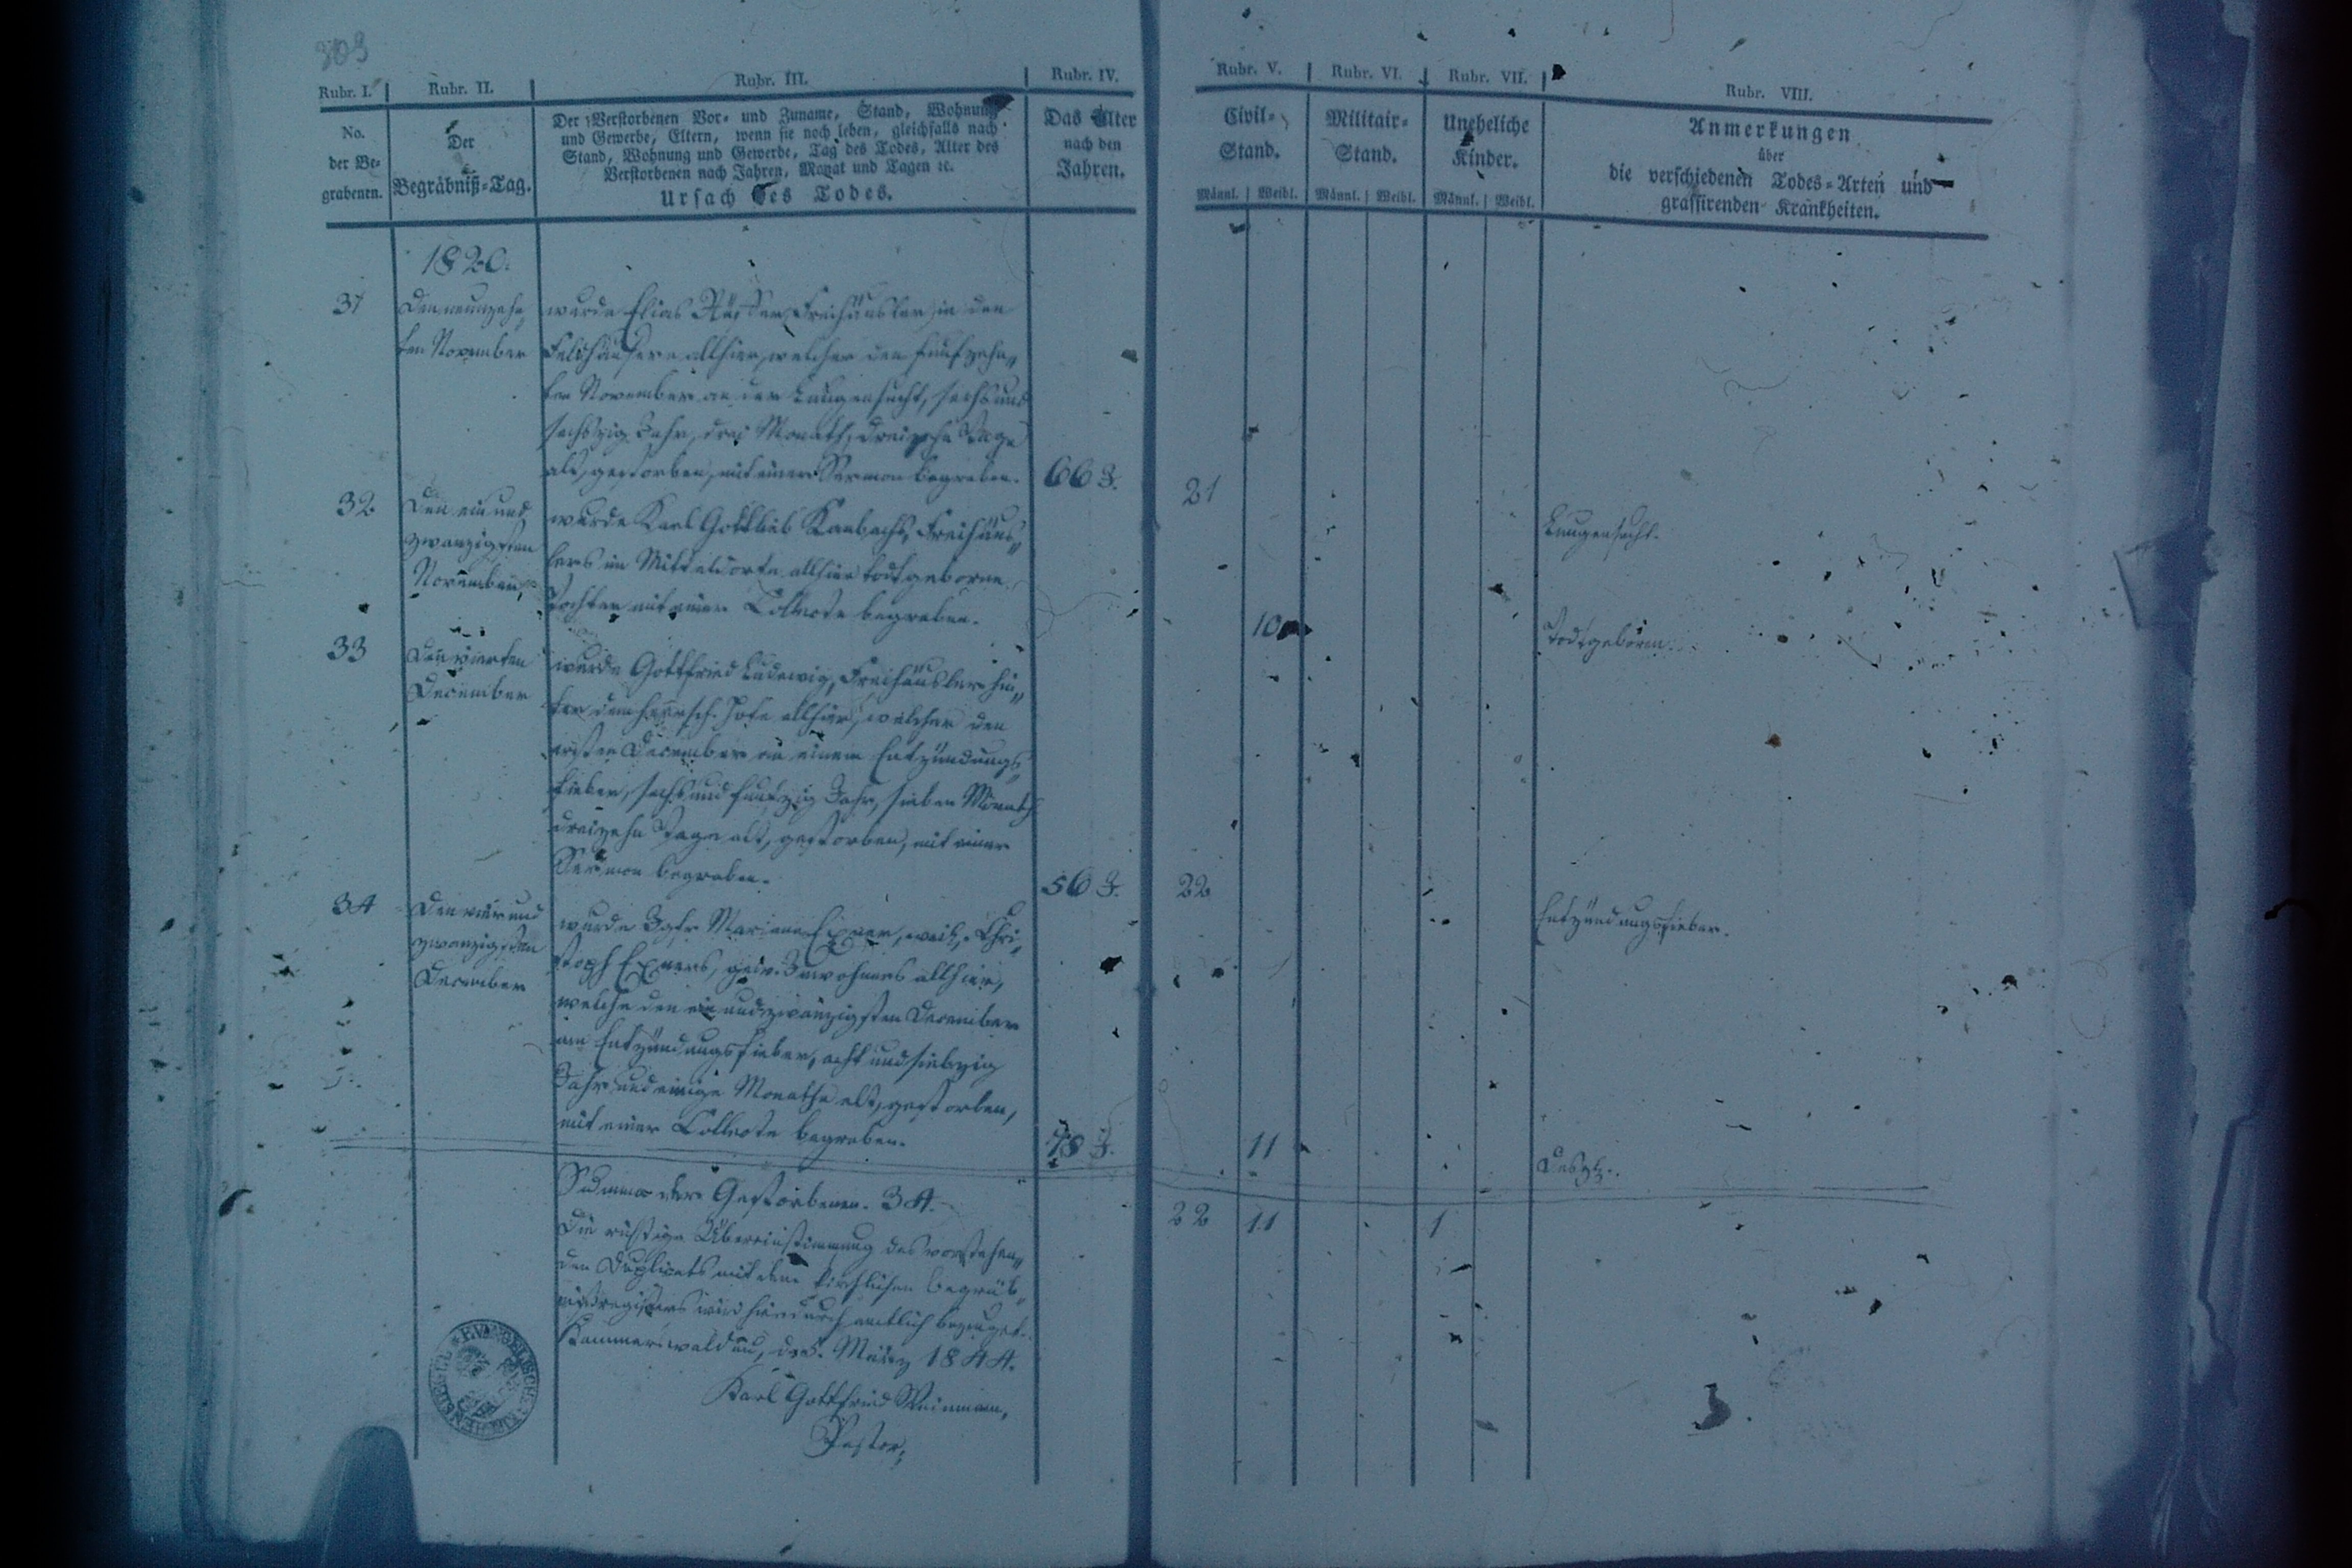 303
Rubr. I. Rubr. II. Rubr. III. Rubr. IV. Rubr. V. Rubr. VI. Rubr. VII. Rubr. VIII.
No.
der Be-
grabenen.
Der
Begräbniß-Tag.
Der Verstorbenen Vor- und Zuname, Stand, Wohnung
und Gewerbe, Eltern, wenn sie noch leben, gleichfalls nach
Stand, Wohnung und Gewerbe, Tag des Todes, Alter des
Verstorbenen nach Jahren, Monat und Tagen ꝛc.
Ursach des Todes.
Das Alter
nach den
Jahren.
Civil-
Stand.
Männl. Weibl.
Militair-
Stand.
Männl. Weibl.
Uneheliche
Kinder.
Männl. Weibl.
Anmerkungen
über
die verschiedenen Todes-Arten und
grassirenden Krankheiten.
1820.
31
Den neunzehn„
ten November
wurde Elias Freihäusler in den
Feldhäusern allhier, welcher den funfzehn„
ten November an der Lungensucht, sechs und
sechszig Jahr, drei Monath, dreizehn Tage
alt, gestorben, mit einer Sermon begraben.
66 J.
21
Lungensucht.
32
Den ein und
zwanzigsten
November,
wurde Karl Gottlieb Kambachs, Freihäus„
lers im Mitteldorfe allhier todtgeborne
Tochter mit einer Collecte begraben.
10
Todtgeboren.
33
Den vierten
December
wurde Gottfried Ludewig, Freihäusler hin„
ter dem herrsch. Hofe allhier, welcher den
ersten December an einem Entzündungs„
fieber, sechs und funfzig Jahr, sieben Monath
dreizehn Tage alt, gestorben, mit einer
Sermon begraben.
56 J.
22
Entzündungsfieber.
34
Den vier und
zwanzigsten
December
wurde Igfr. Mariane Exner, weil. Chri„
stoph Exners, gew. Inwohners allhier,
welche den ein und zwanzigsten December
am Entzündungsfieber, acht und siebzig
Jahr und einige Monathe alt, gestorben,
mit einer Collecte begraben.
78 J.
11
Desgl.
Summa der Gestorbenen. 34.
22 11 1
Die richtige Übereinstimmung des vorstehen„
den Duplicats mit dem kirchlichen Begräb„
nißregisters wird hierdurch amtlich bezeuget.
Kammerswaldau, d. 5. März 1844.
Karl Gottfried
Pastor,